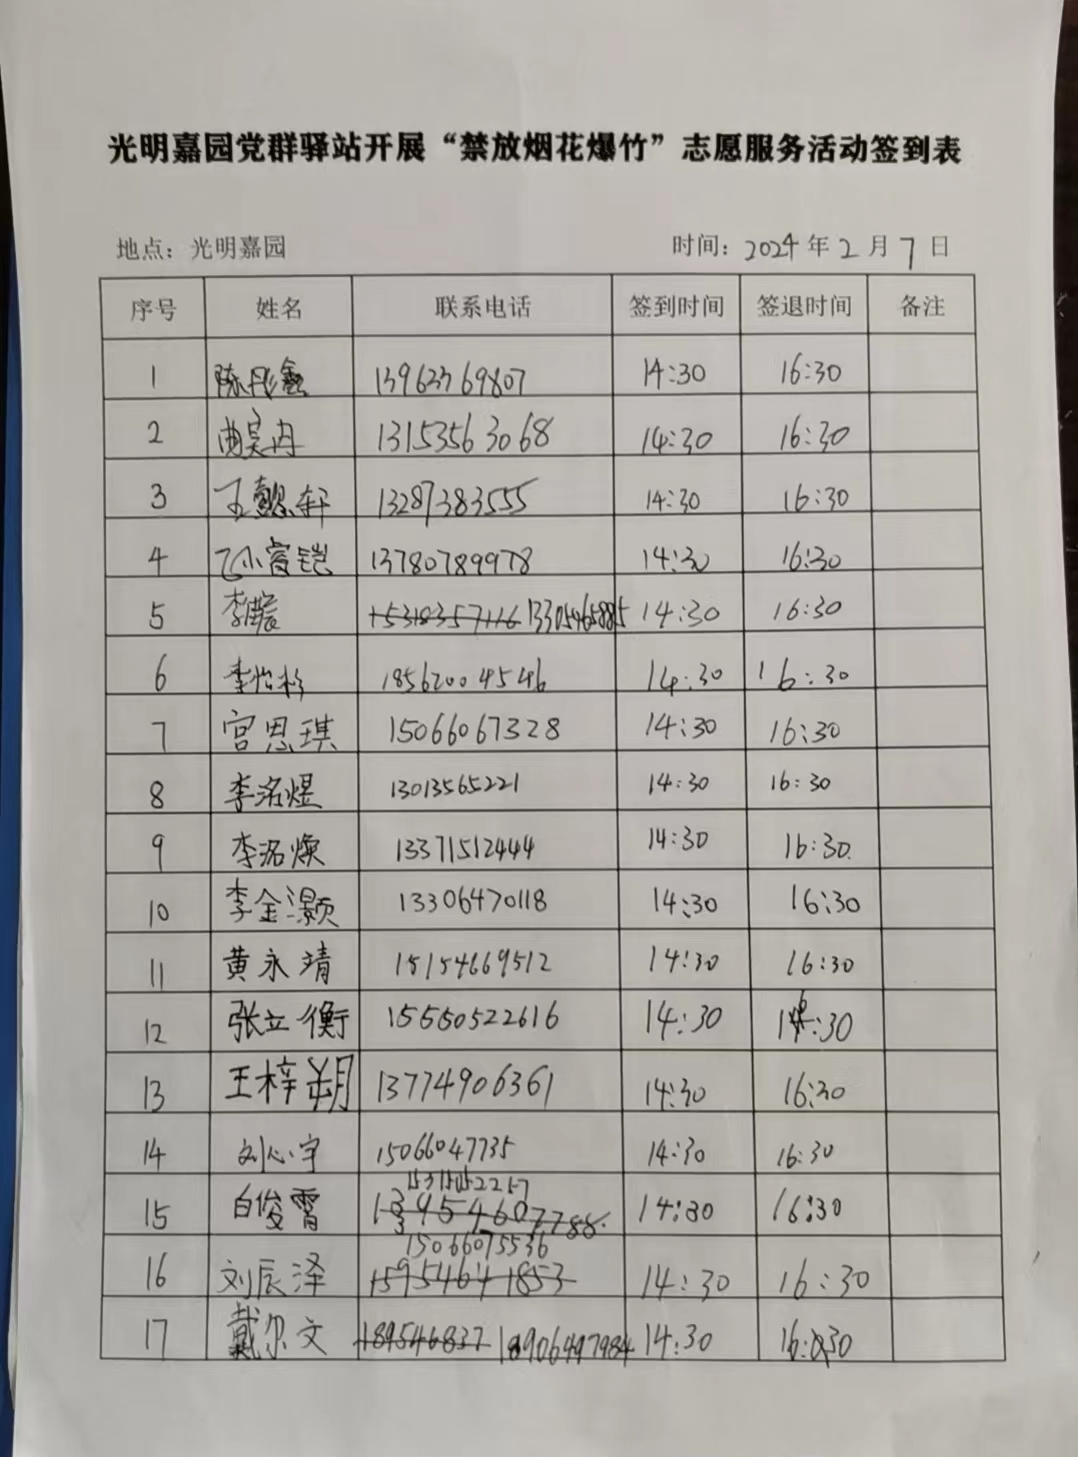 光明嘉园党群驿站开展“禁放烟花爆竹”志愿服务活动签到表
地点：光明嘉园 时间：2024年2月7日
序号 姓名 联系电话 签到时间 签退时间 备注
1 陈彤鑫 13963769807 14:30 16:30
2 曲昊冉 13153563068 14:30 16:30
3 王懿轩 13287383555 14:30 16:30
4 13780789978 14:30 16:30
5 李 15318357116 13305465885 14:30 16:30
6 李怡杉 18562004546 14:30 16:30
7 宫思琪 15066067328 14:30 16:30
8 李洺煜 13013565221 14:30 16:30
9 李洺焕 13371512444 14:30 16:30
10 李金灏 13306470118 14:30 16:30
11 黄永靖 15154669512 14:30 16:30
12 张立衡 15550522616 14:30 16:30
13 王梓朔 13774906361 14:30 16:30
14 刘心宇 15066047735 14:30 16:30
15315052257
15 白俊霄 13954607788 14:30 16:30
15066075536
16 刘辰泽 15954641853 14:30 16:30
17 戴尔文 189546837 18906497984 14:30 16:30